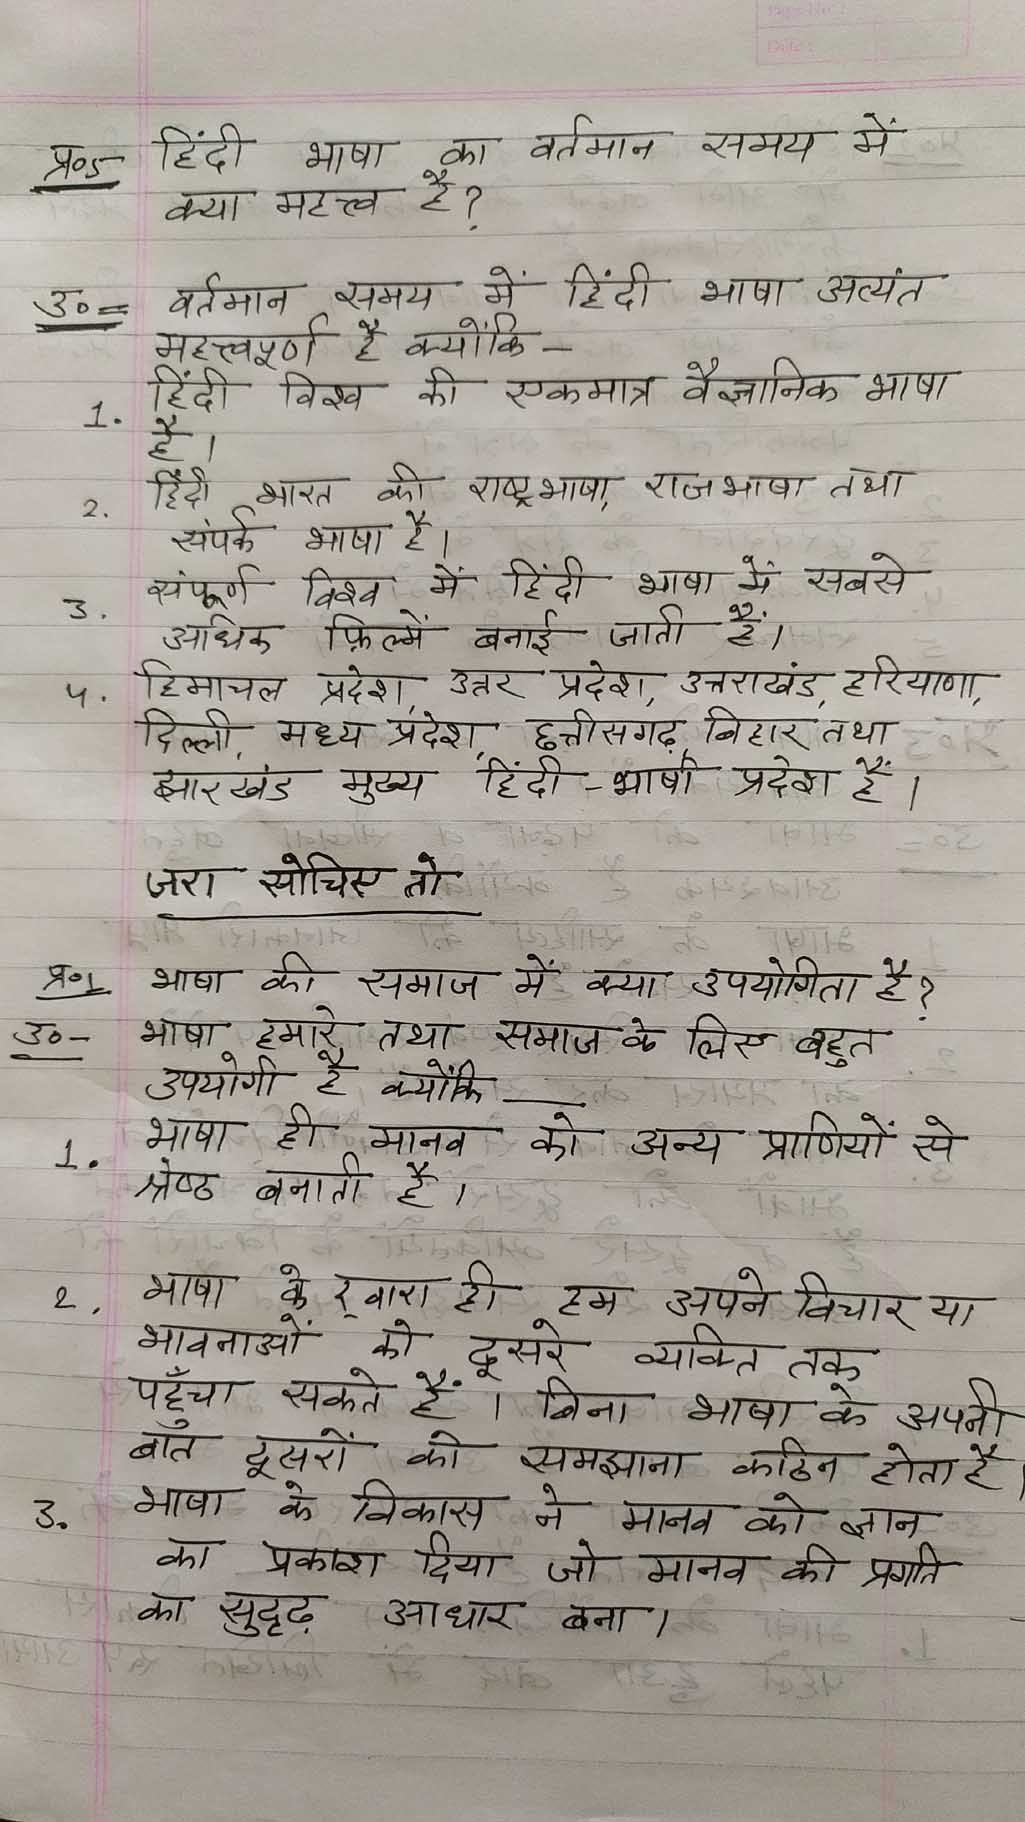 प्र०5 हिंदी भाषा का वर्तमान समय में
क्या महत्त्व है?
उ०= वर्तमान समय में हिंदी भाषा अत्यंत
महत्त्वपूर्ण है क्योंकि -
1. हिंदी विश्व की एकमात्र वैज्ञानिक भाषा
है।
2. हिंदी भारत की राष्ट्रभाषा, राजभाषा तथा
संपर्क भाषा है।
3. संपूर्ण विश्व में हिंदी भाषा में सबसे
अधिक फ़िल्में बनाई जाती हैं।
4. हिमाचल प्रदेश, उत्तर प्रदेश, उत्तराखंड, हरियाणा,
दिल्ली, मध्य प्रदेश, छत्तीसगढ़, बिहार तथा
झारखंड मुख्य हिंदी-भाषी प्रदेश हैं।
जरा सोचिए तो
प्र०1 भाषा की समाज में क्या उपयोगिता है?
उ०- भाषा हमारे तथा समाज के लिए बहुत
उपयोगी है क्योंकि —
1. भाषा ही मानव को अन्य प्राणियों से
श्रेष्ठ बनाती है।
2. भाषा के द्वारा ही हम अपने विचार या
भावनाओं को दूसरे व्यक्ति तक
पहुँचा सकते हैं। बिना भाषा के अपनी
बात दूसरों को समझाना कठिन होता है।
3. भाषा के विकास ने मानव को ज्ञान
का प्रकाश दिया जो मानव की प्रगति
का सुदृढ़ आधार बना।